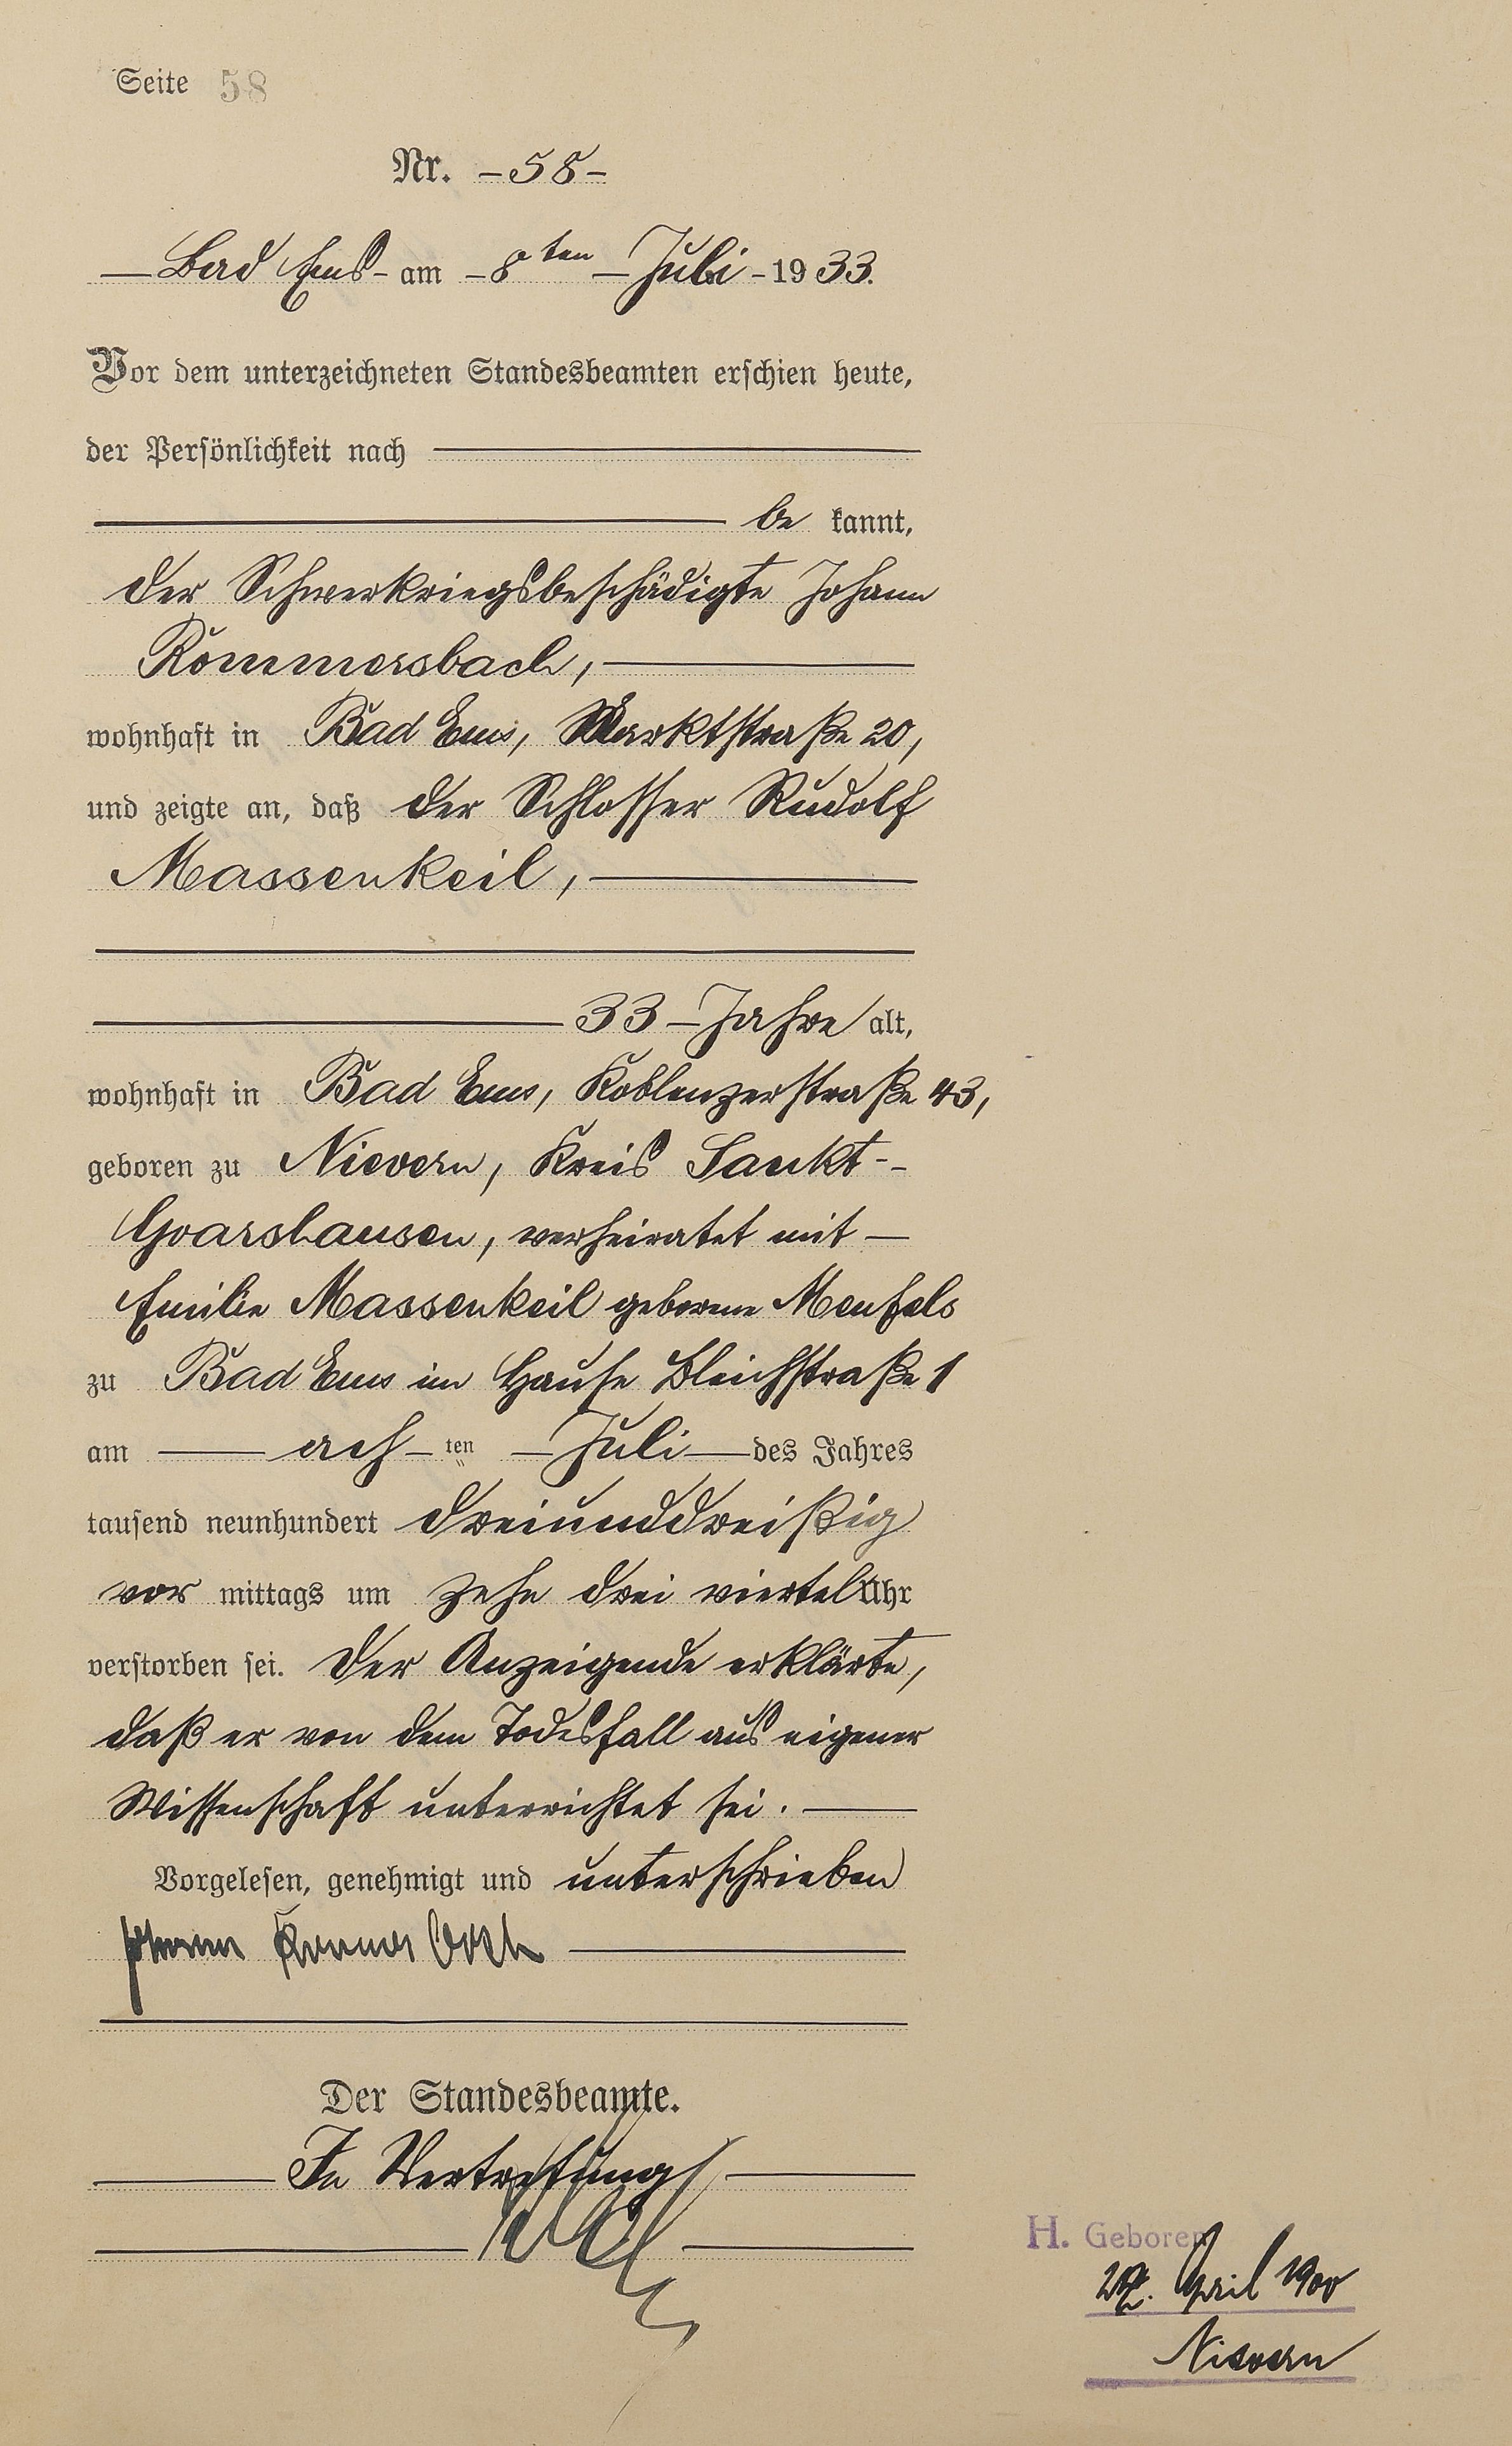 Seite 58
Nr. – 58 –
– Bad Ems – am – 8ten – Juli – 1933.
Vor dem unterzeichneten Standesbeamten erschien heute,
der Persönlichkeit nach
be kannt,
der Schwerkriegsbeschädigte Johann
Rommersbach,
wohnhaft in Bad Ems, Marktstraße 20,
und zeigte an, daß der Schlosser Rudolf
Massenkeil,
33 – Jahre alt,
wohnhaft in Bad Ems, Koblenzerstraße 43,
geboren zu Nievern, Kreis Sankt-
Goarshausen, verheiratet mit –
Emilie Massenkeil geborene Menfels
zu Bad Ems im Hause Bleichstraße 1
am – ach – ten – Juli – des Jahres
tausend neunhundert dreiunddreißig
vor mittags um zehn drei viertel Uhr
verstorben sei. Der Anzeigende erklärte,
daß er von dem Todesfall aus eigener
Wissenschaft unterrichtet sei. –
Vorgelesen, genehmigt und unterschrieben
Johann Rommersbach
Der Standesbeamte.
In Vertretung
H. Geboren
April 1900
Nievern